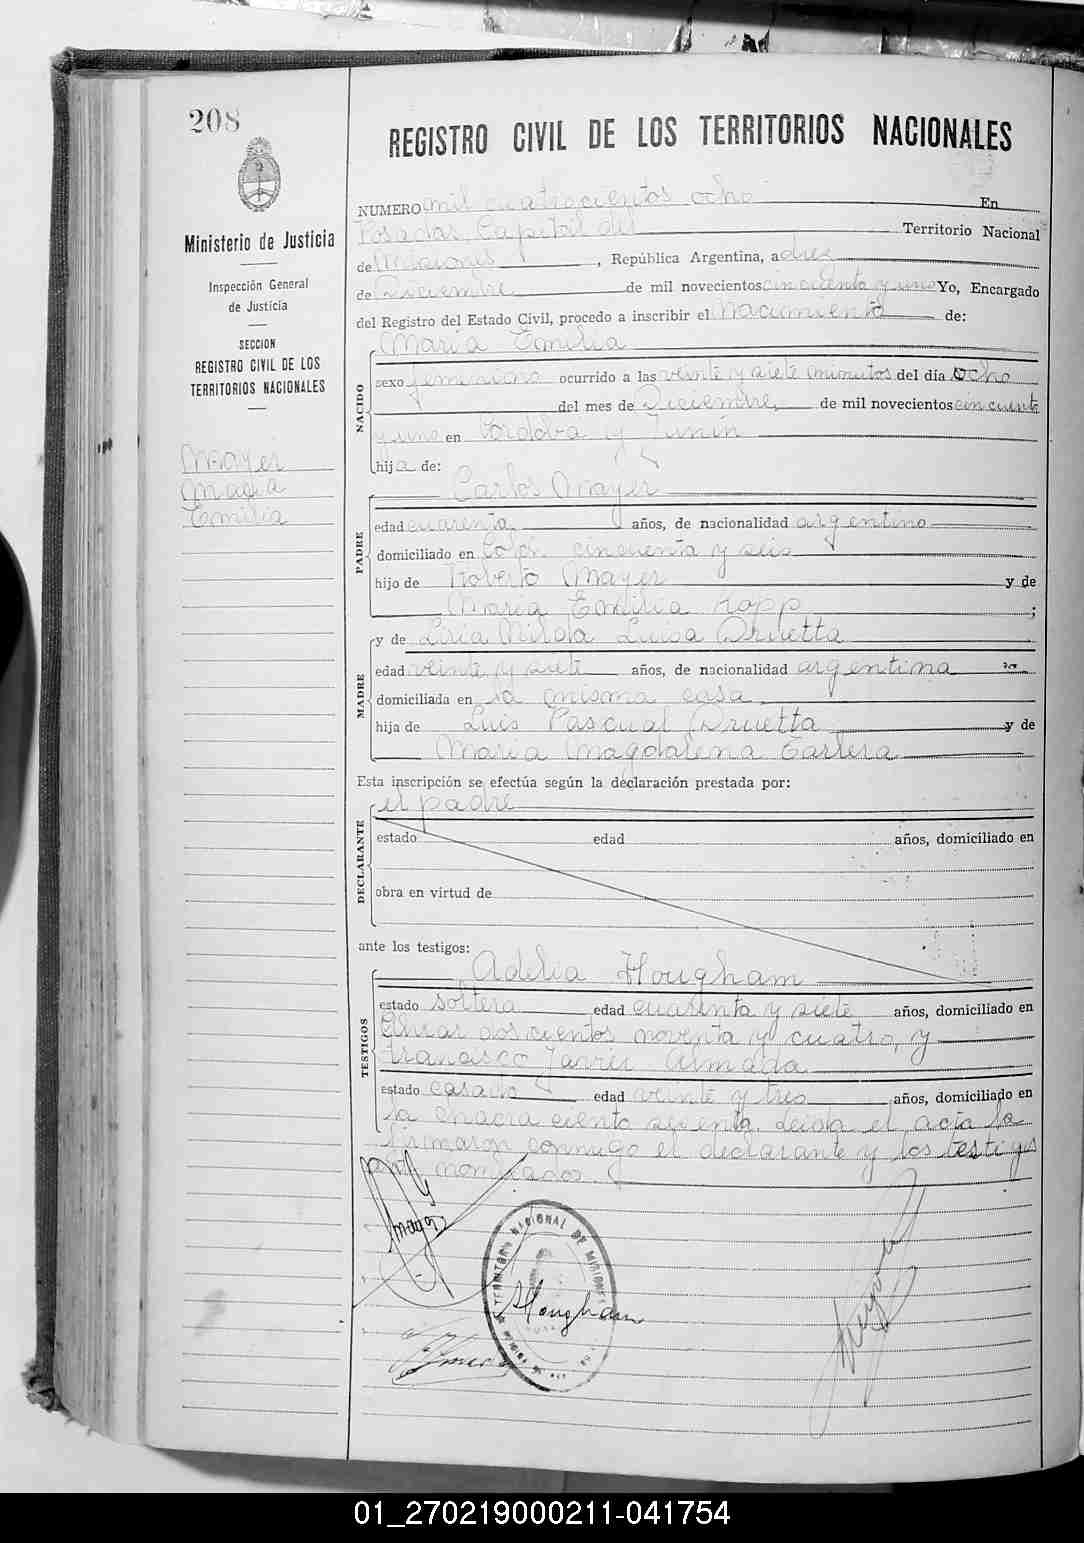 208
REGISTRO CIVIL DE LOS TERRITORIOS NACIONALES
Ministerio de Justicia
Inspección General
de Justicia
SECCION
REGISTRO CIVIL DE LOS
TERRITORIOS NACIONALES
Mayer
Maria
Emilia
NUMERO mil cuatrocientos ocho En
Posadas, Capital del Territorio Nacional
de Misiones, República Argentina, a diez
de Diciembre de mil novecientos cincuenta y uno Yo, Encargado
del Registro del Estado Civil, procedo a inscribir el Nacimiento de:
NACIDO
Maria Emilia
sexo femenino ocurrido a las veinte y siete minutos del día ocho
del mes de Diciembre de mil novecientos cincuenta
y uno en Córdoba y Junin
hija de:
PADRE
Carlos Mayer
edad cuarenta años, de nacionalidad argentino
domiciliado en Colón cincuenta y seis
hijo de Roberto Mayer y de
Maria Emilia Kopp;
MADRE
y de Luisa Druetta
edad veinte y siete años, de nacionalidad argentina
domiciliada en la misma casa
hija de Luis Pascual Druetta y de
Maria Magdalena
Esta inscripción se efectúa según la declaración prestada por:
DECLARANTE
el padre
estado edad años, domiciliado en
obra en virtud de
ante los testigos:
TESTIGOS
Adelia Hougham
estado soltera edad cuarenta y siete años, domiciliado en
doscientos noventa y cuatro, y
Francisco Javier Almada
estado casado edad veinte y tres años, domiciliado en
la chacra ciento sesenta. Leida el acta la
firmaron conmigo el declarante y los testigos
nombrados.
Mayer
TERRITORIO NACIONAL DE MISIONES
Hougham
01_270219000211-041754